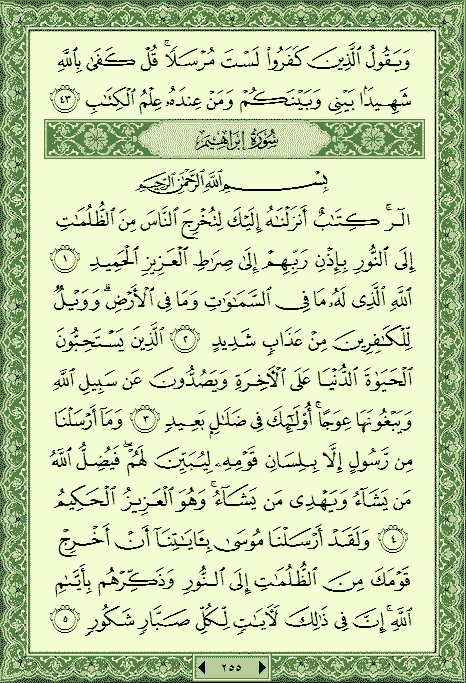 وَيَقُولُ الَّذِينَ كَفَرُوا۟ لَسْتَ مُرْسَلًا ۚ قُلْ كَفَىٰ بِاللَّهِ
شَهِيدًا بَيْنِي وَبَيْنَكُمْ وَمَنْ عِندَهُۥ عِلْمُ الْكِتَابِ ٤٣
سُورَةُ إِبْرَاهِيمَ
بِسْمِ اللَّهِ الرَّحْمَٰنِ الرَّحِيمِ
الٓر ۚ كِتَابٌ أَنزَلْنَاهُ إِلَيْكَ لِتُخْرِجَ النَّاسَ مِنَ الظُّلُمَاتِ
إِلَى النُّورِ بِإِذْنِ رَبِّهِمْ إِلَىٰ صِرَاطِ الْعَزِيزِ الْحَمِيدِ ١
اللَّهِ الَّذِي لَهُۥ مَا فِي السَّمَاوَاتِ وَمَا فِي الْأَرْضِ ۗ وَوَيْلٌ
لِّلْكَافِرِينَ مِنْ عَذَابٍ شَدِيدٍ ٢ الَّذِينَ يَسْتَحِبُّونَ
الْحَيَوٰةَ الدُّنْيَا عَلَى الْآخِرَةِ وَيَصُدُّونَ عَن سَبِيلِ اللَّهِ
وَيَبْغُونَهَا عِوَجًا ۚ أُو۟لَٰٓئِكَ فِي ضَلَالٍ بَعِيدٍ ٣ وَمَآ أَرْسَلْنَا
مِن رَّسُولٍ إِلَّا بِلِسَانِ قَوْمِهِۦ لِيُبَيِّنَ لَهُمْ ۖ فَيُضِلُّ اللَّهُ
مَن يَشَآءُ وَيَهْدِي مَن يَشَآءُ ۚ وَهُوَ الْعَزِيزُ الْحَكِيمُ
٤ وَلَقَدْ أَرْسَلْنَا مُوسَىٰ بِـَٔايَاتِنَآ أَنْ أَخْرِجْ
قَوْمَكَ مِنَ الظُّلُمَاتِ إِلَى النُّورِ وَذَكِّرْهُم بِأَيَّامِ
اللَّهِ ۚ إِنَّ فِي ذَٰلِكَ لَآيَاتٍ لِّكُلِّ صَبَّارٍ شَكُورٍ ٥
٢٥٥